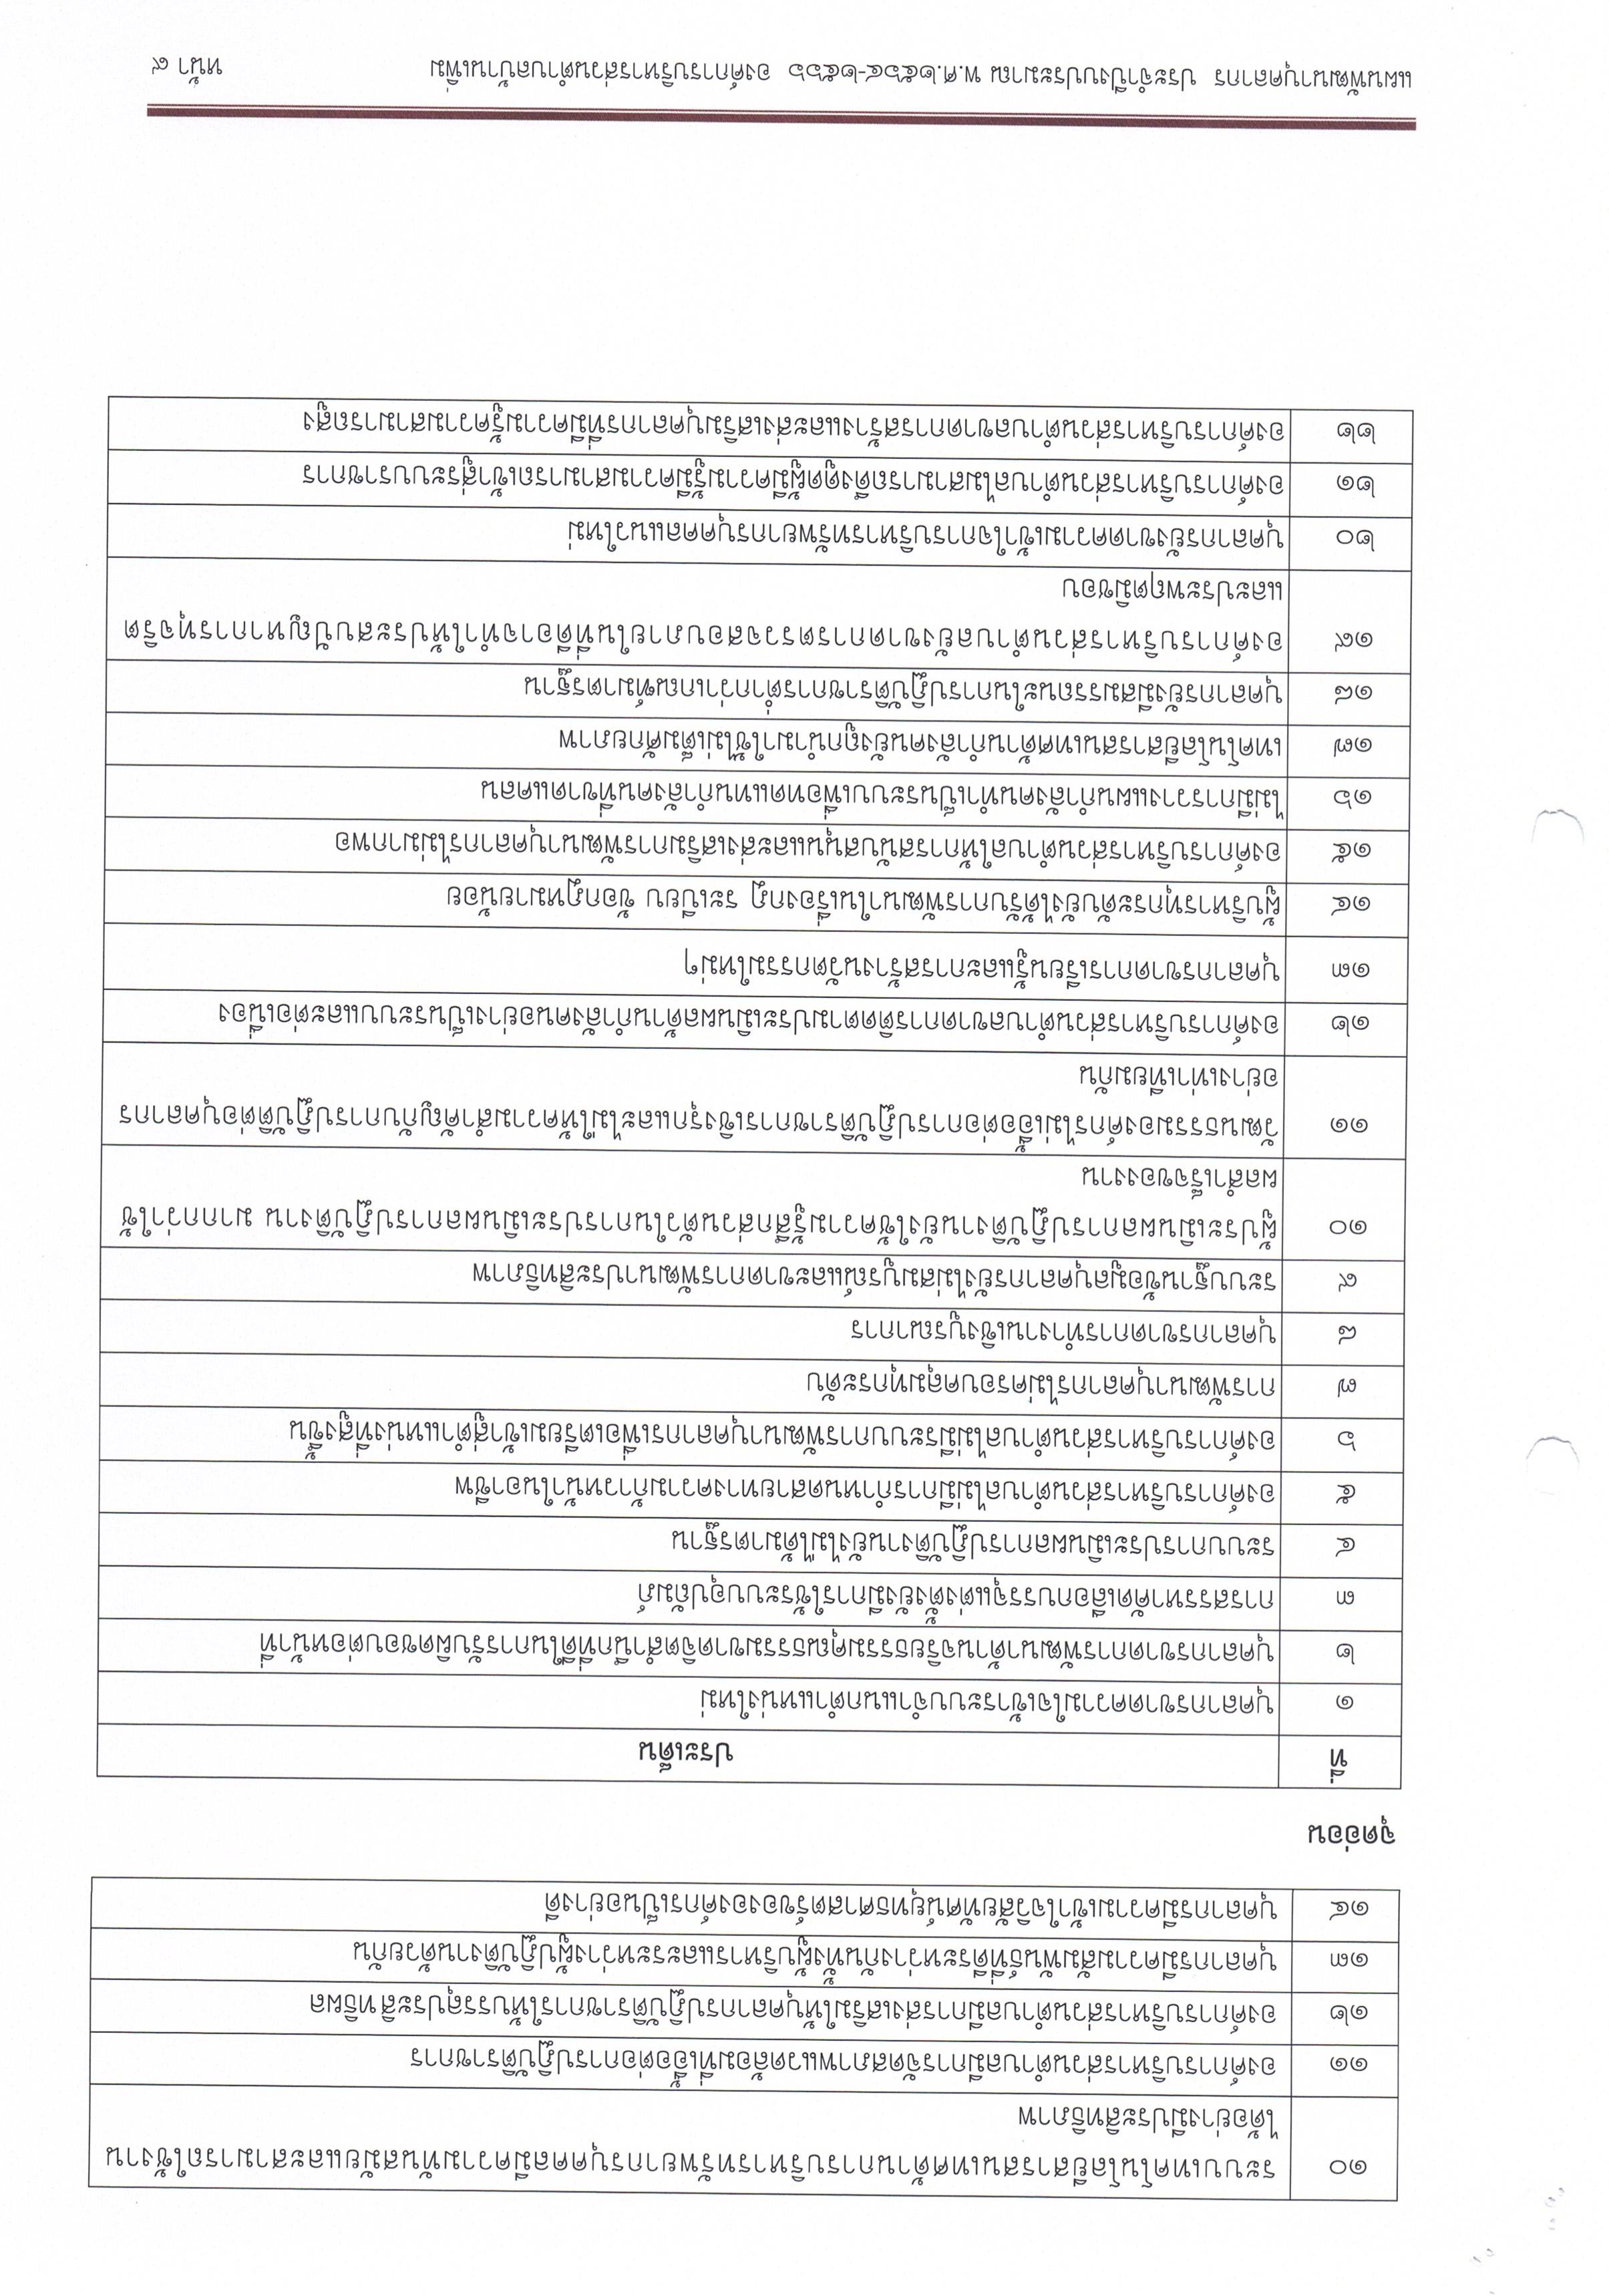 ๑๐ ระบบเทคโนโลยีสารสนเทศด้านการบริหารทรัพยากรบุคคลมีความทันสมัยและสามารถใช้งาน
ได้อย่างมีประสิทธิภาพ
๑๑ องค์การบริหารส่วนตำบลมีการจัดสภาพแวดล้อมที่เอื้อต่อการปฏิบัติราชการ
๑๒ องค์การบริหารส่วนตำบลมีการส่งเสริมให้บุคลากรปฏิบัติราชการให้บรรลุประสิทธิผล
๑๓ บุคลากรมีความสัมพันธ์ที่ดีระหว่างกันทั้งผู้บริหารและระหว่างผู้ปฏิบัติงานด้วยกัน
๑๔ บุคลากรมีความเข้าใจวิสัยทัศน์ยุทธศาสตร์ขององค์กรเป็นอย่างดี
จุดอ่อน
ที่ ประเด็น
๑ บุคลากรขาดความใจเข้าระบบจำแนกตำแหน่งใหม่
๒ บุคลากรขาดการพัฒนาด้านจริยธรรมคุณธรรมขาดจิตสำนึกที่ดีในการรับผิดชอบต่อหน้าที่
๓ การสรรหาคัดเลือกบรรจุแต่งตั้งยังมีการใช้ระบบอุปถัมภ์
๔ ระบบการประเมินผลการปฏิบัติงานยังไม่ได้มาตรฐาน
๕ องค์การบริหารส่วนตำบลไม่มีการกำหนดสายทางความก้าวหน้าในอาชีพ
๖ องค์การบริหารส่วนตำบลไม่มีระบบการพัฒนาบุคลากรเพื่อเตรียมเข้าสู่ตำแหน่งที่สูงขึ้น
๗ การพัฒนาบุคลากรไม่ครอบคลุมทุกระดับ
๘ บุคลากรขาดการทำงานเชิงบูรณาการ
๙ ระบบฐานข้อมูลบุคลากรยังไม่สมบูรณ์และขาดการพัฒนาประสิทธิภาพ
๑๐ ผู้ประเมินผลการปฏิบัติงานยังใช้ความรู้สึกส่วนตัวในการประเมินผลการปฏิบัติงาน มากกว่าใช้
ผลสำเร็จของงาน
๑๑ วัฒนธรรมองค์กรไม่เอื้อต่อการปฏิบัติราชการเชิงรุกและไม่ให้ความสำคัญกับการปฏิบัติต่อบุคลากร
อย่างเท่าเทียมกัน
๑๒ องค์การบริหารส่วนตำบลขาดการติดตามประเมินผลด้านกำลังคนอย่างเป็นระบบและต่อเนื่อง
๑๓ บุคลากรขาดการเรียนรู้และการสร้างนวัตกรรมใหม่ๆ
๑๔ ผู้บริหารทุกระดับยังได้รับการพัฒนาในเรื่องกฎ ระเบียบ ข้อกฎหมายน้อย
๑๕ องค์การบริหารส่วนตำบลให้การสนับสนุนและส่งเสริมการพัฒนาบุคลากรไม่มากพอ
๑๖ ไม่มีการวางแผนกำลังคนทำเป็นระบบเพื่อทดแทนกำลังคนที่ขาดแคลน
๑๗ เทคโนโลยีสารสนเทศด้านกำลังคนยังถูกนำมาใช้ไม่เต็มศักยภาพ
๑๘ บุคลากรยังมีสมรรถนะในการปฏิบัติราชการต่ำกว่าเกณฑ์มาตรฐาน
๑๙ องค์การบริหารส่วนตำบลยังขาดการตรวจสอบภายในที่ดีอาจทำให้ประสบปัญหาการทุจริต
และประพฤติมิชอบ
๒๐ บุคลากรยังขาดความเข้าใจการบริหารทรัพยากรบุคคลแนวใหม่
๒๑ องค์การบริหารส่วนตำบลไม่สามารถดึงดูดผู้มีความรู้มีความสามารถเข้าสู่ระบบราชการ
๒๒ องค์การบริหารส่วนตำบลขาดการสร้างและส่งเสริมบุคลากรที่มีความรู้ความสามารถสูง
แผนพัฒนาบุคลากร ประจำปีงบประมาณ พ.ศ.๒๕๖๔-๒๕๖๖ องค์การบริหารส่วนตำบลบ้านเพิ่ม หน้า ๙